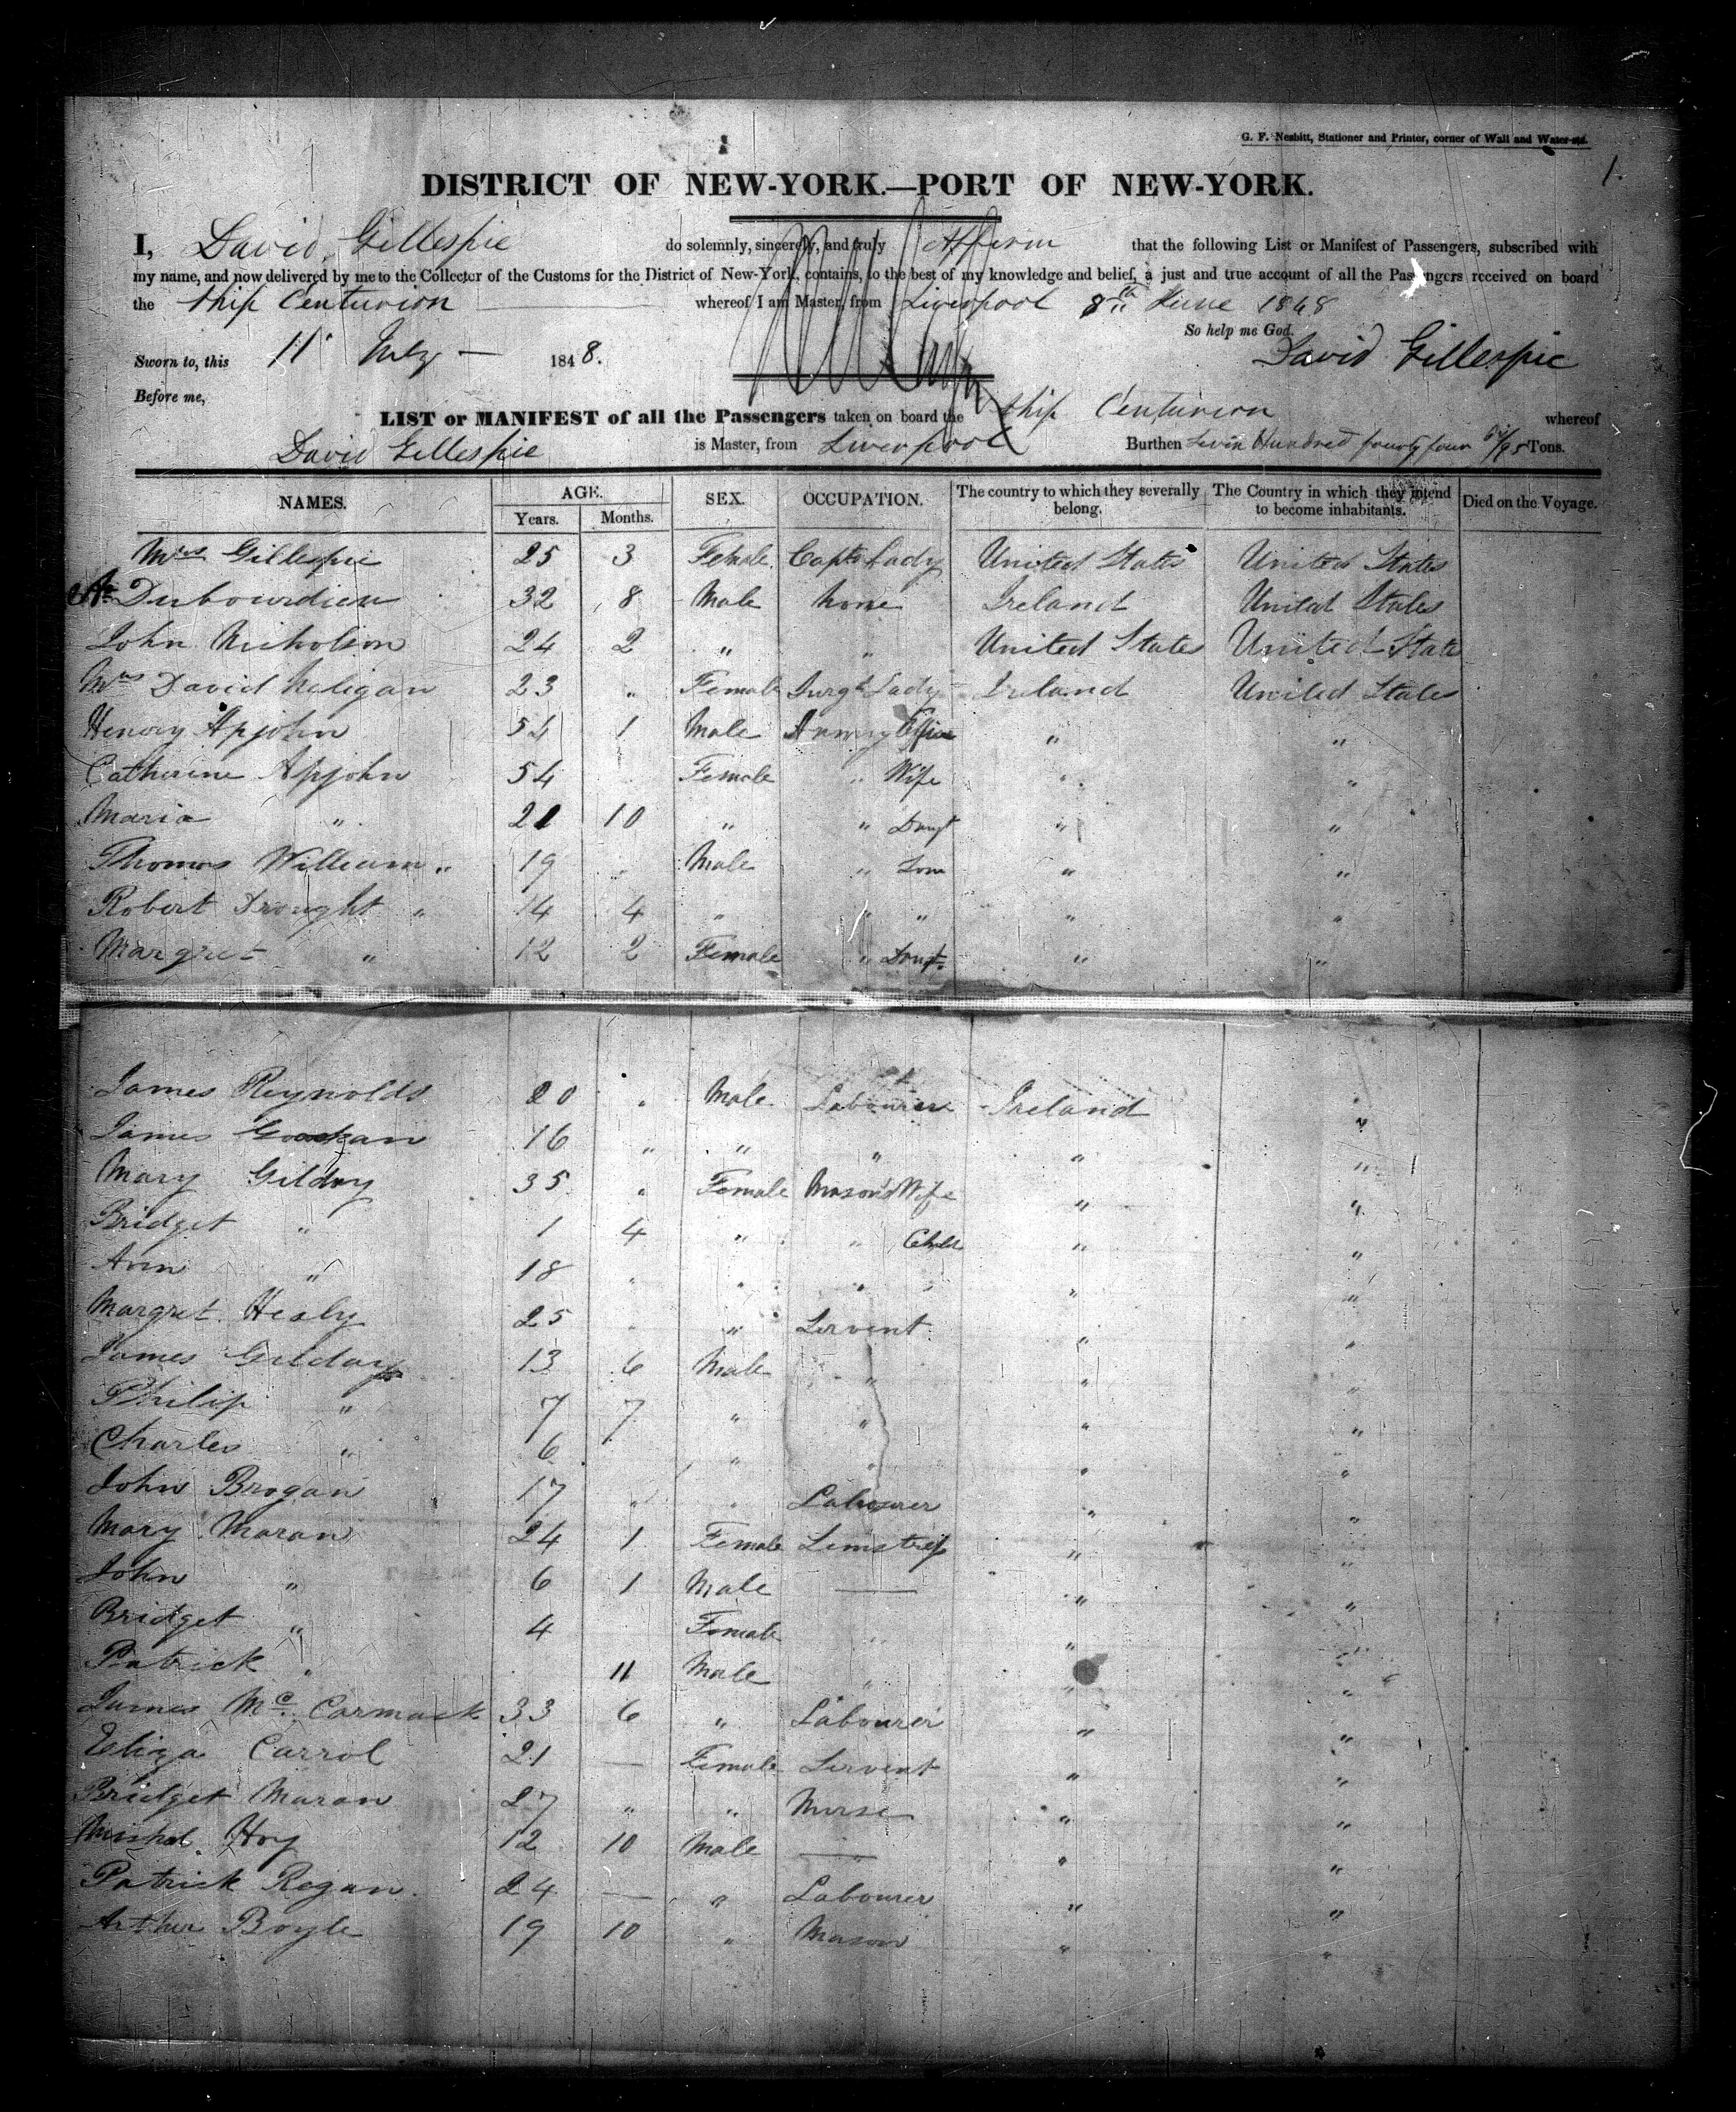 G. F. Nesbitt, Stationer and Printer, corner of Wall and Water-sts.
1.
DISTRICT OF NEW-YORK.—PORT OF NEW-YORK.
I, David Gillespie do solemnly, sincerely, and truly Affirm that the following List or Manifest of Passengers, subscribed with
my name, and now delivered by me to the Collector of the Customs for the District of New-York, contains, to the best of my knowledge and belief, a just and true account of all the Passengers received on board
the Ship Centurion whereof I am Master, from Liverpool 8th June 1848
So help me God.
Sworn to, this 11 July 1848. David Gillespie
Before me,
LIST or MANIFEST of all the Passengers taken on board the Ship Centurion whereof
David Gillespie is Master, from Liverpool Burthen Seven Hundred fourty four /95 Tons.
NAMES. AGE. SEX. OCCUPATION. The country to which they severally belong. The Country in which they intend to become inhabitants. Died on the Voyage.
Years. Months.
Mrs Gillespie 25 3 Female Capts Lady United States United States
Dubourdieu 32 8 Male None Ireland United States
John Nicholson 24 2 " " United States United State
Mrs David Naligan 23 " Female Surgt Lady Ireland United States
Henery Apjohn 54 1 Male Armey " "
Catherine Apjohn 54 Female " Wife " "
Maria " 21 10 " " Daugt " "
Thomas William " 19 Male " Son " "
Robert Drought " 14 4 " " " " "
Margret " 12 2 Female " Daugt. " "
James Reynolds 20 " Male Labourer Ireland "
James 16 " " " " "
Mary Gildey 35 " Female Mason's Wife " "
Bridget " 1 4 " " Child " "
Ann " 18 " " " " "
Margret Healy 25 " " Servent " "
James Gilday 13 6 Male " " "
Philip " 7 7 " " " "
Charles " 6 " " " "
John Brogan 17 " " Labourer " "
Mary Maran 24 1 Female Semstres " "
John " 6 1 Male — " "
Bridget " 4 Female " " "
Patrick " 11 Male " " "
James Mc. Carmack 33 6 " Labourer " "
Eliza Carrol 21 — Female Servent " "
Bridget Maran 27 " " Nurse " "
Mishal Hoy 12 10 Male — " "
Patrick Regan 24 — " Labourer " "
Arthur Boyle 19 10 " Mason " "